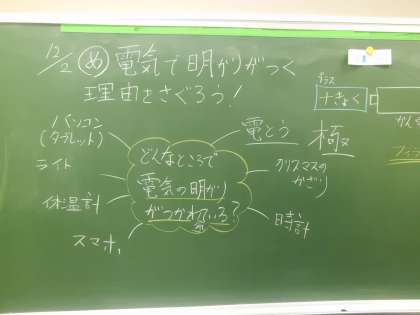 12/2 め 電気で明かりがつく
理由をさぐろう!
プラス
+きょく
かん
パソコン
(タブレット)
ライト
体温計
スマホ
どんなところで
電気の明かり
がつかわれている?
電とう
極
クリスマスの
かざり
時計